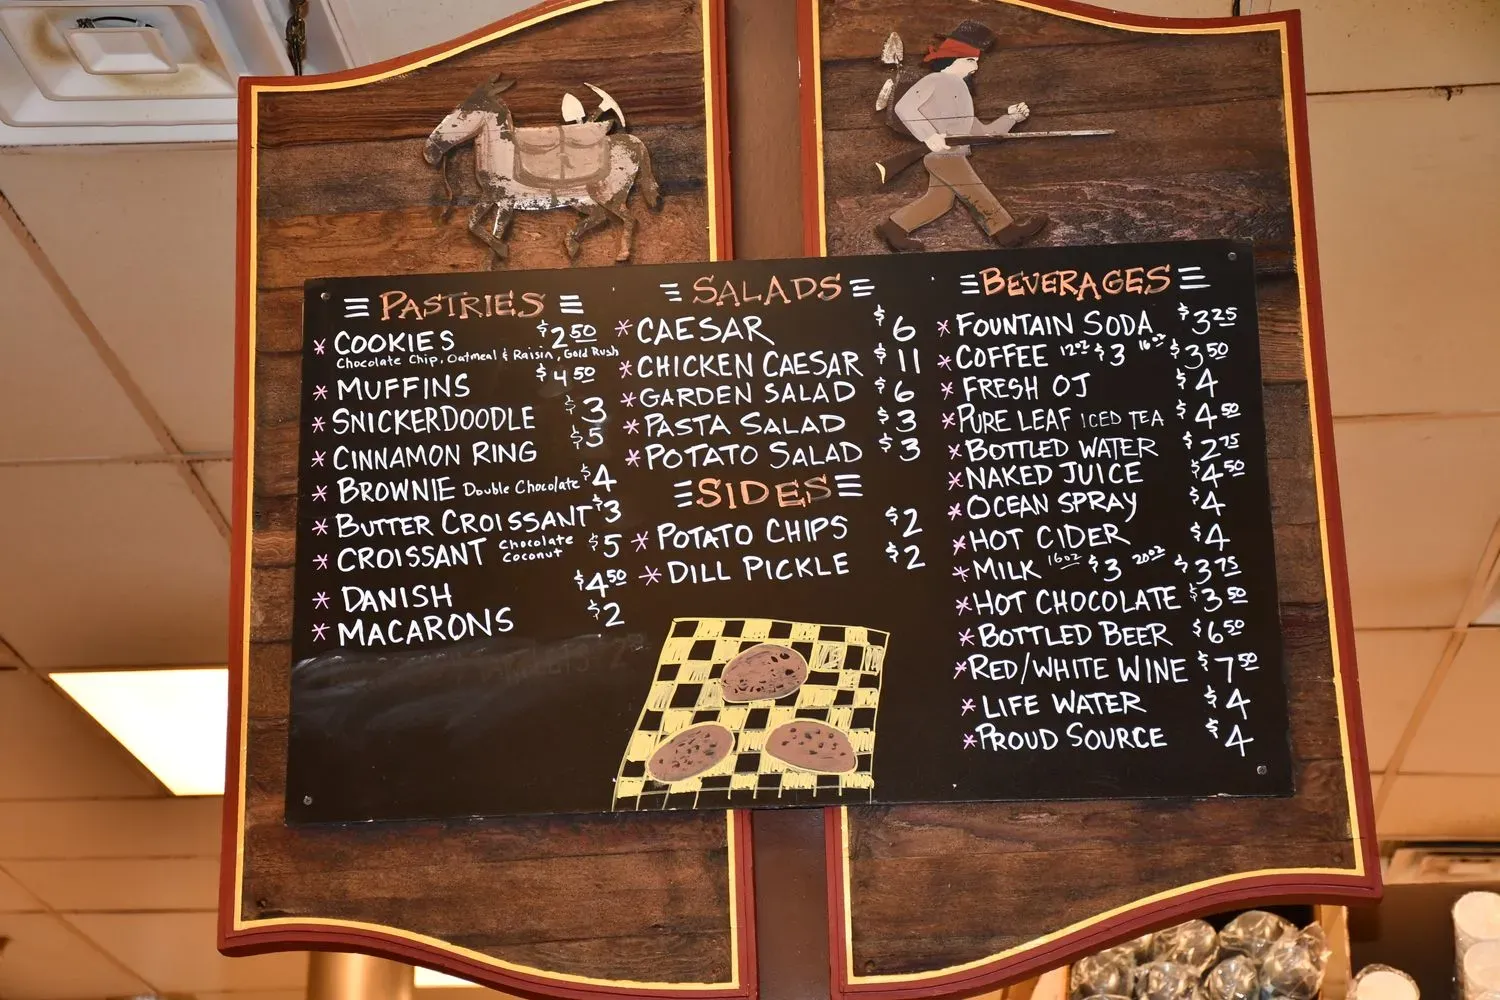 PASTRIES
* COOKIES $2 50
Chocolate Chip, Oatmeal & Raisin, Gold Rush
* MUFFINS $4 50
* SNICKERDOODLE $3
* CINNAMON RING $5
* BROWNIE Double Chocolate $4
* BUTTER CROISSANT $3
* CROISSANT Chocolate $5
Coconut
* DANISH $4 50
* MACARONS $2
SALADS
* CAESAR $6
* CHICKEN CAESAR $11
* GARDEN SALAD $6
* PASTA SALAD $3
* POTATO SALAD $3
SIDES
* POTATO CHIPS $2
* DILL PICKLE $2
BEVERAGES
* FOUNTAIN SODA $3 25
* COFFEE 12oz $3 16oz $3 50
* FRESH OJ $4
* PURE LEAF ICED TEA $4 50
* BOTTLED WATER $2 75
* NAKED JUICE $4 50
* OCEAN SPRAY $4
* HOT CIDER $4
* MILK 16oz $3 20oz $3 75
* HOT CHOCOLATE $3 50
* BOTTLED BEER $6 50
* RED/WHITE WINE $7 50
* LIFE WATER $4
* PROUD SOURCE $4